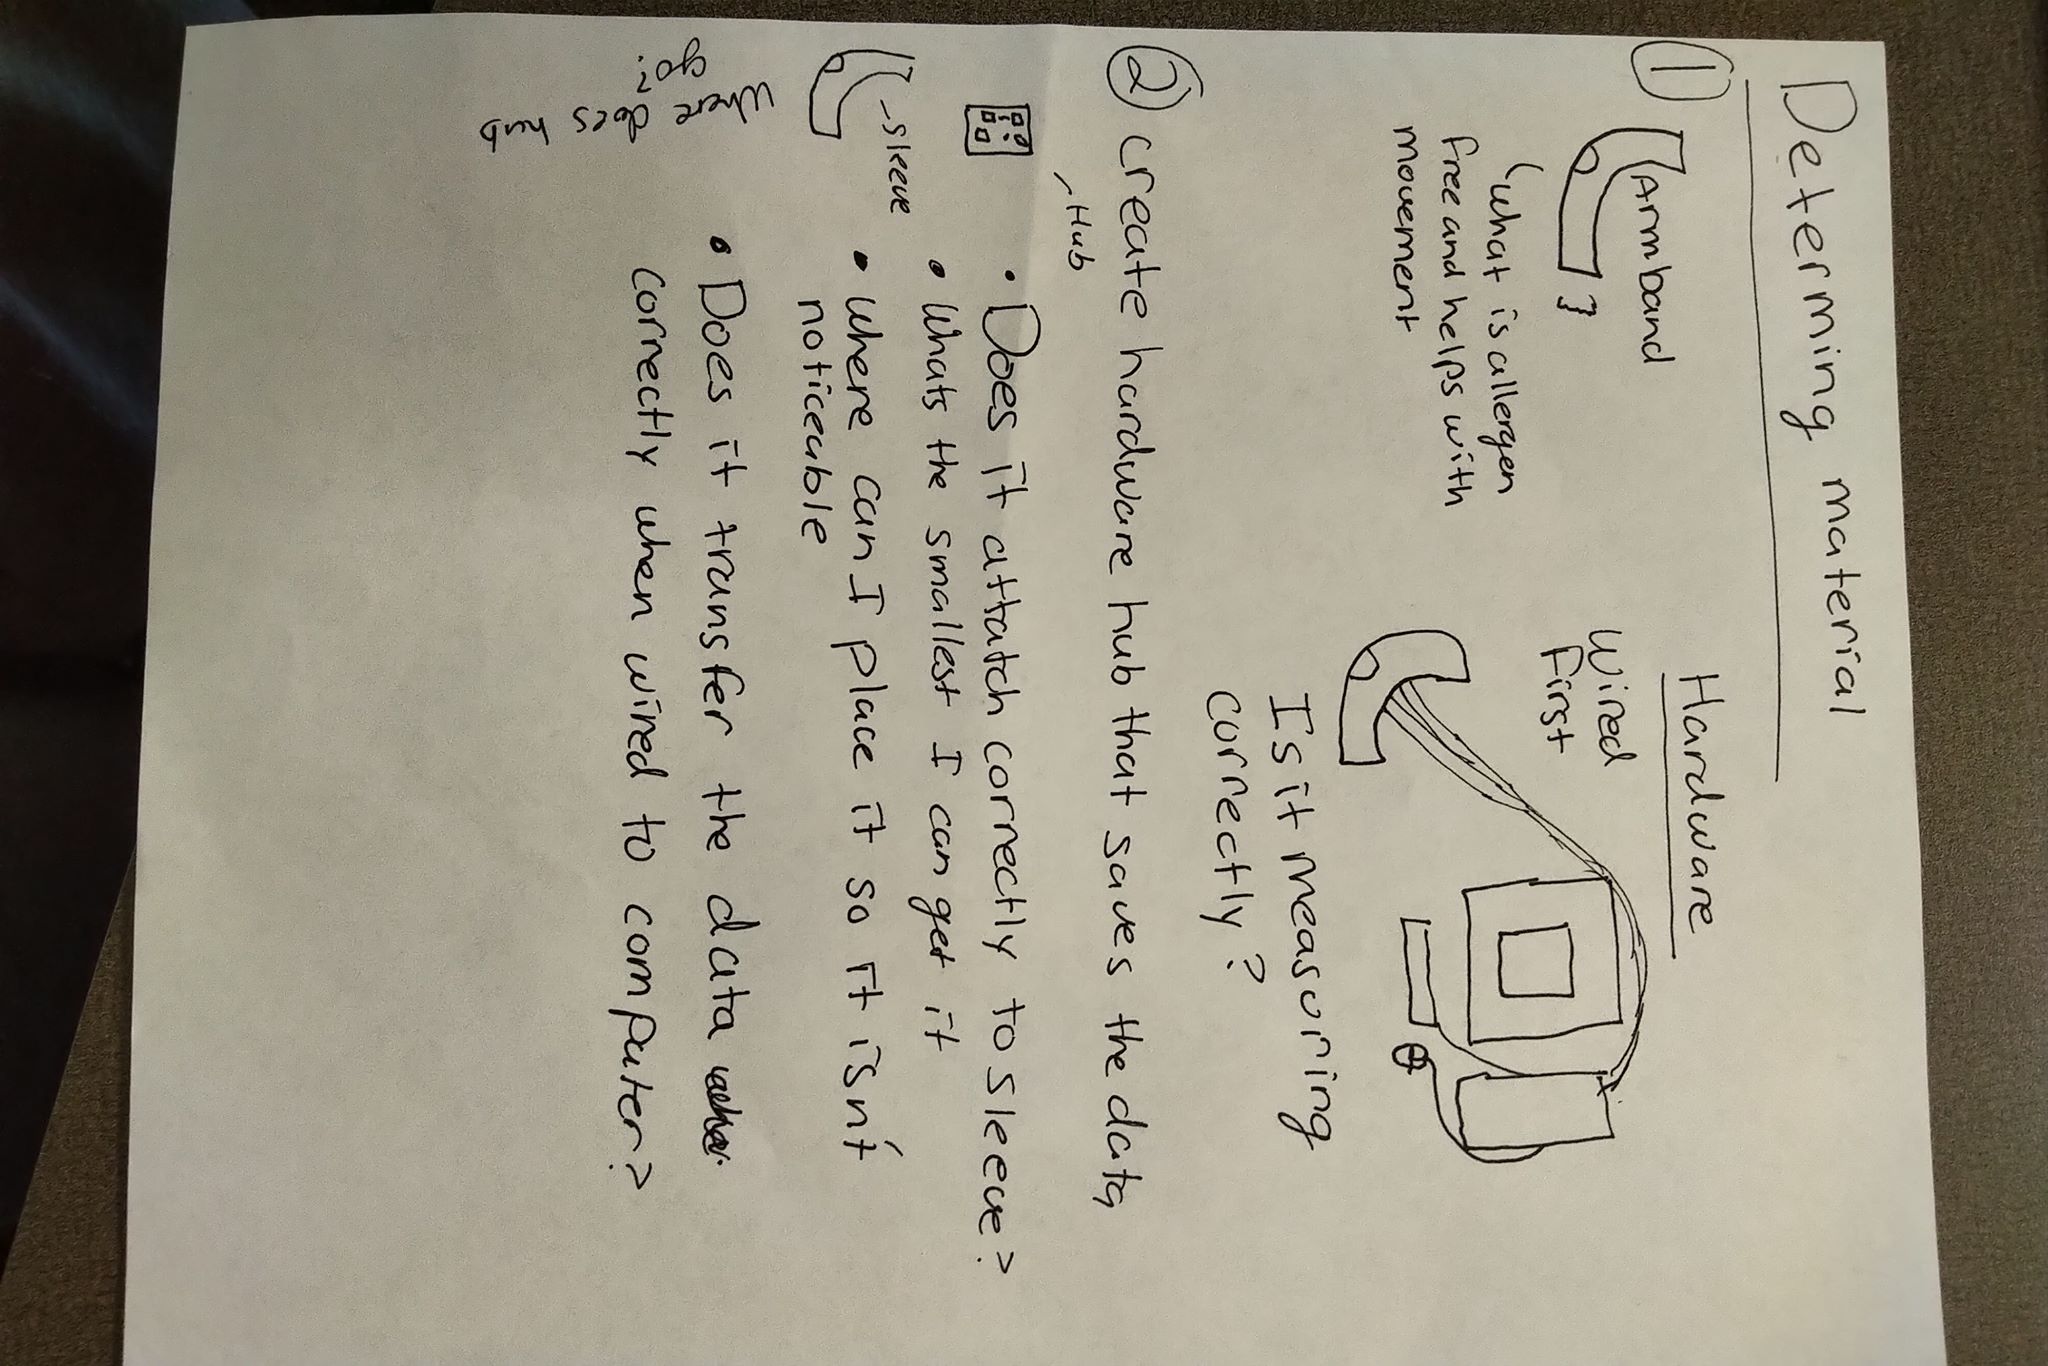 Determing material
1
Armband
What is allergen
free and helps with
movement
Hardware
Wired
First
Is it measuring
correctly?
2 create hardware hub that saves the data
Hub
• Does it attatch correctly to sleeve?
• Whats the smallest I can get it
sleeve
• Where can I place it so it isn't
noticeable
Where does hub
go?
• Does it transfer the data
correctly when wired to computer?